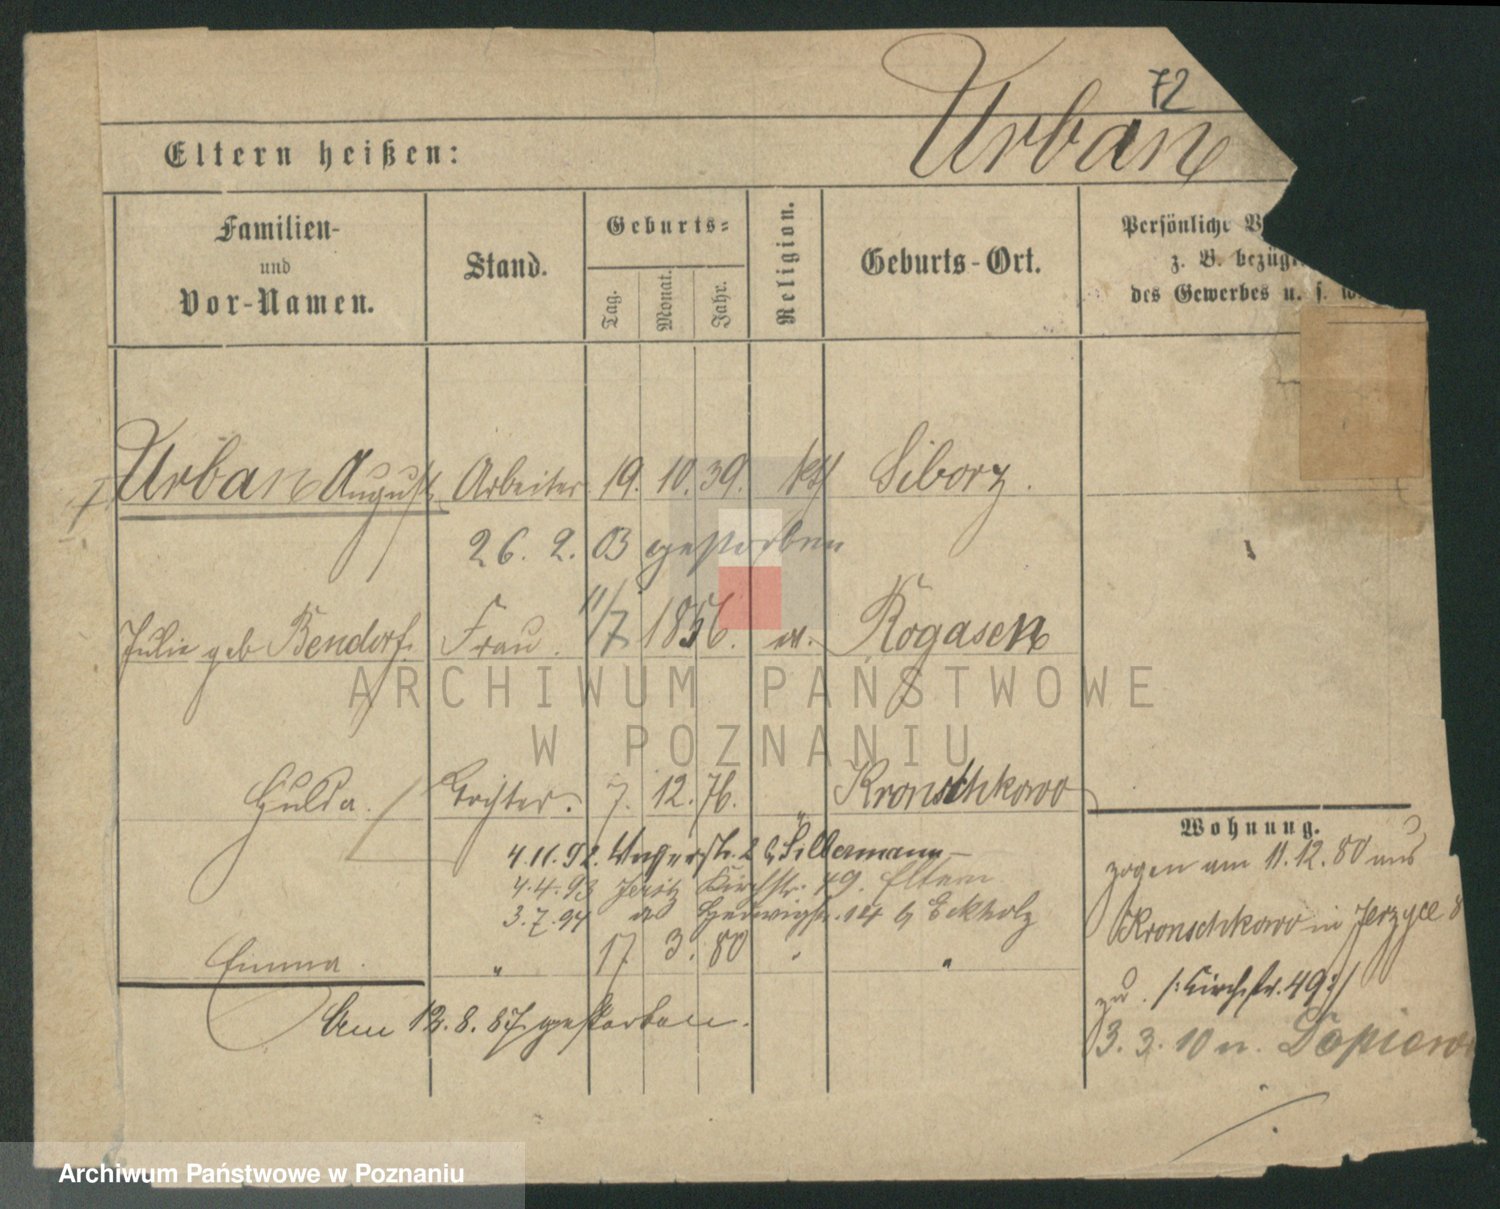 72
Urban
Eltern heißen:
Familien-
und
Vor-Namen.
Stand.
Geburts-
Tag.
Monat.
Jahr.
Religion.
Geburts-Ort.
Persönliche V
z. B. bezügl
des Gewerbes u. s. w.
Urban August Arbeiter 19. 10. 39. kth Siborz.
26. 2. 03 gestorben
Julie geb Bendorf. Frau. 11/7 1856. Rogasen
Hulda. Tochter. 7. 12. 76. " Kronschkowo
4.11.92. 2 b Silbermann
4.4.93 Jersitz Kirchstr. 49. Eltern
3.7.94 do Hedwigstr. 14 b Eckholz
Emma. " 17. 3. 80 " "
Am 12. 8. 87 gestorben.
Wohnung.
zogen am 11.12.80 aus
Kronschkowo in Jerzyce 8
zu. /: Kirchstr. 49 :/
3. 3. 10 n. Dopiewo
ARCHIWUM PAŃSTWOWE
W POZNANIU
Archiwum Państwowe w Poznaniu